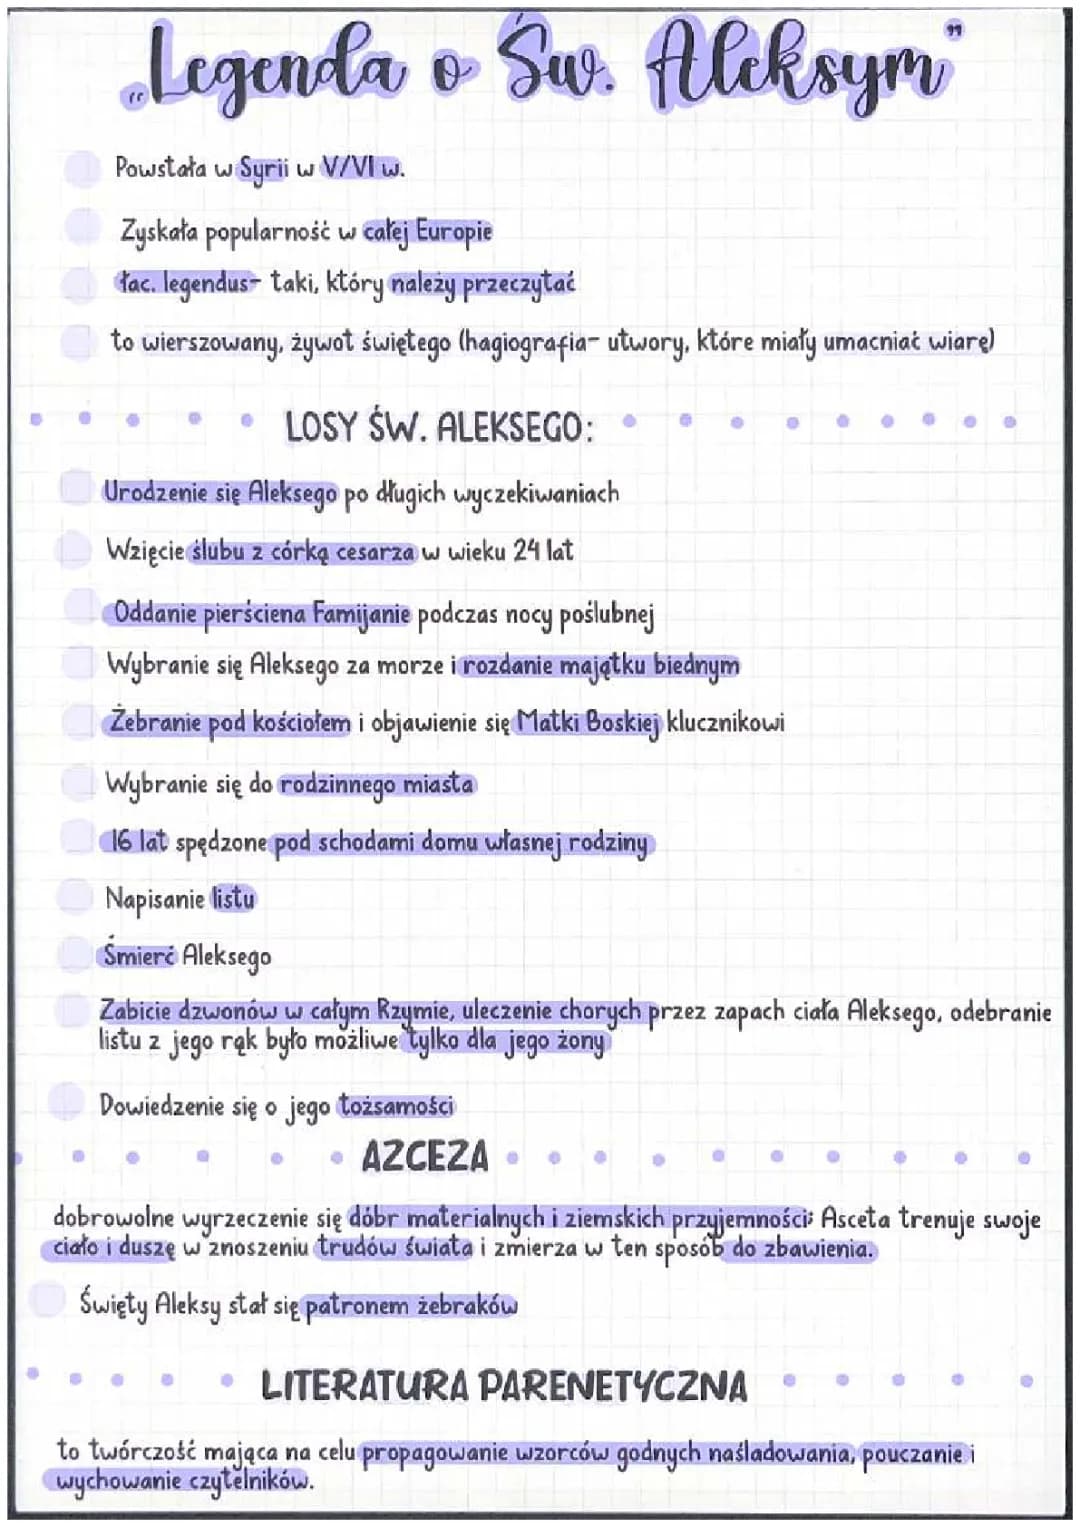 „Legenda o Św. Aleksym"
Powstała w Syrii w V/VI w.
Zyskała popularność w całej Europie
łac. legendus- taki, który należy przeczytać
to wierszowany, żywot świętego (hagiografia- utwory, które miały umacniać wiarę)
LOSY ŚW. ALEKSEGO:
Urodzenie się Aleksego po długich wyczekiwaniach
Wzięcie ślubu z córką cesarza w wieku 24 lat
Oddanie pierściena Famijanie podczas nocy poślubnej
Wybranie się Aleksego za morze i rozdanie majątku biednym
Żebranie pod kościołem i objawienie się Matki Boskiej klucznikowi
Wybranie się do rodzinnego miasta
16 lat spędzone pod schodami domu własnej rodziny
Napisanie listu
Śmierć Aleksego
Zabicie dzwonów w całym Rzymie, uleczenie chorych przez zapach ciała Aleksego, odebranie
listu z jego rąk było możliwe tylko dla jego żony
Dowiedzenie się o jego tożsamości
AZCEZA
dobrowolne wyrzeczenie się dóbr materialnych i ziemskich przyjemności; Asceta trenuje swoje
ciało i duszę w znoszeniu trudów świata i zmierza w ten sposób do zbawienia.
Święty Aleksy stał się patronem żebraków
LITERATURA PARENETYCZNA
to twórczość mająca na celu propagowanie wzorców godnych naśladowania, pouczanie i
wychowanie czytelników.